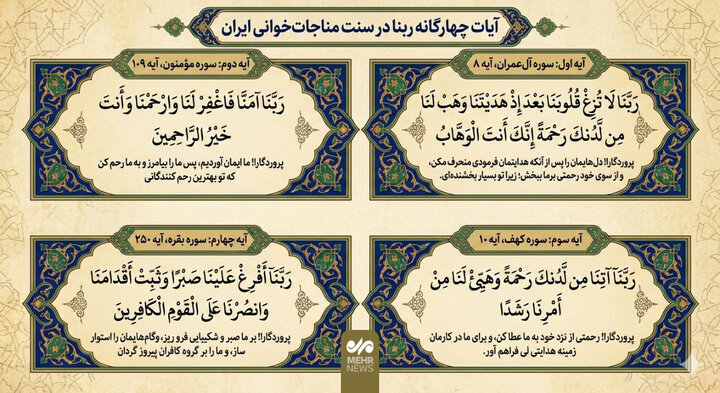 آیات چهارگانه ربنا در سنت مناجات‌خوانی ایران
آیه اول: سوره آل‌عمران، آیه ۸
رَبَّنَا لَا تُزِغْ قُلُوبَنَا بَعْدَ إِذْ هَدَيْتَنَا وَهَبْ لَنَا
مِن لَّدُنكَ رَحْمَةً إِنَّكَ أَنتَ الْوَهَّابُ
پروردگارا! دل‌هایمان را پس از آنکه هدایتمان فرمودی منحرف مکن،
و از سوی خود رحمتی برما ببخش؛ زیرا تو بسیار بخشنده‌ای.
آیه دوم: سوره مؤمنون، آیه ۱۰۹
رَبَّنَا آمَنَّا فَاغْفِرْ لَنَا وَارْحَمْنَا وَأَنتَ
خَيْرُ الرَّاحِمِينَ
پروردگارا! ما ایمان آوردیم، پس ما را بیامرز و به ما رحم کن
که تو بهترین رحم کنندگانی
آیه سوم: سوره کهف، آیه ۱۰
رَبَّنَا آتِنَا مِن لَّدُنكَ رَحْمَةً وَهَيِّئْ لَنَا مِنْ
أَمْرِنَا رَشَدًا
پروردگارا! رحمتی از نزد خود به ما عطا کن، و برای ما در کارمان
زمینه هدایتی لی فراهم آور.
آیه چهارم: سوره بقره، آیه ۲۵۰
رَبَّنَا أَفْرِغْ عَلَيْنَا صَبْرًا وَثَبِّتْ أَقْدَامَنَا
وَانصُرْنَا عَلَى الْقَوْمِ الْكَافِرِينَ
پروردگارا! بر ما صبر و شکیبایی فرو ریز، وگام‌هایمان را استوار
ساز، و ما را بر گروه کافران پیروز گردان
MEHR
NEWS